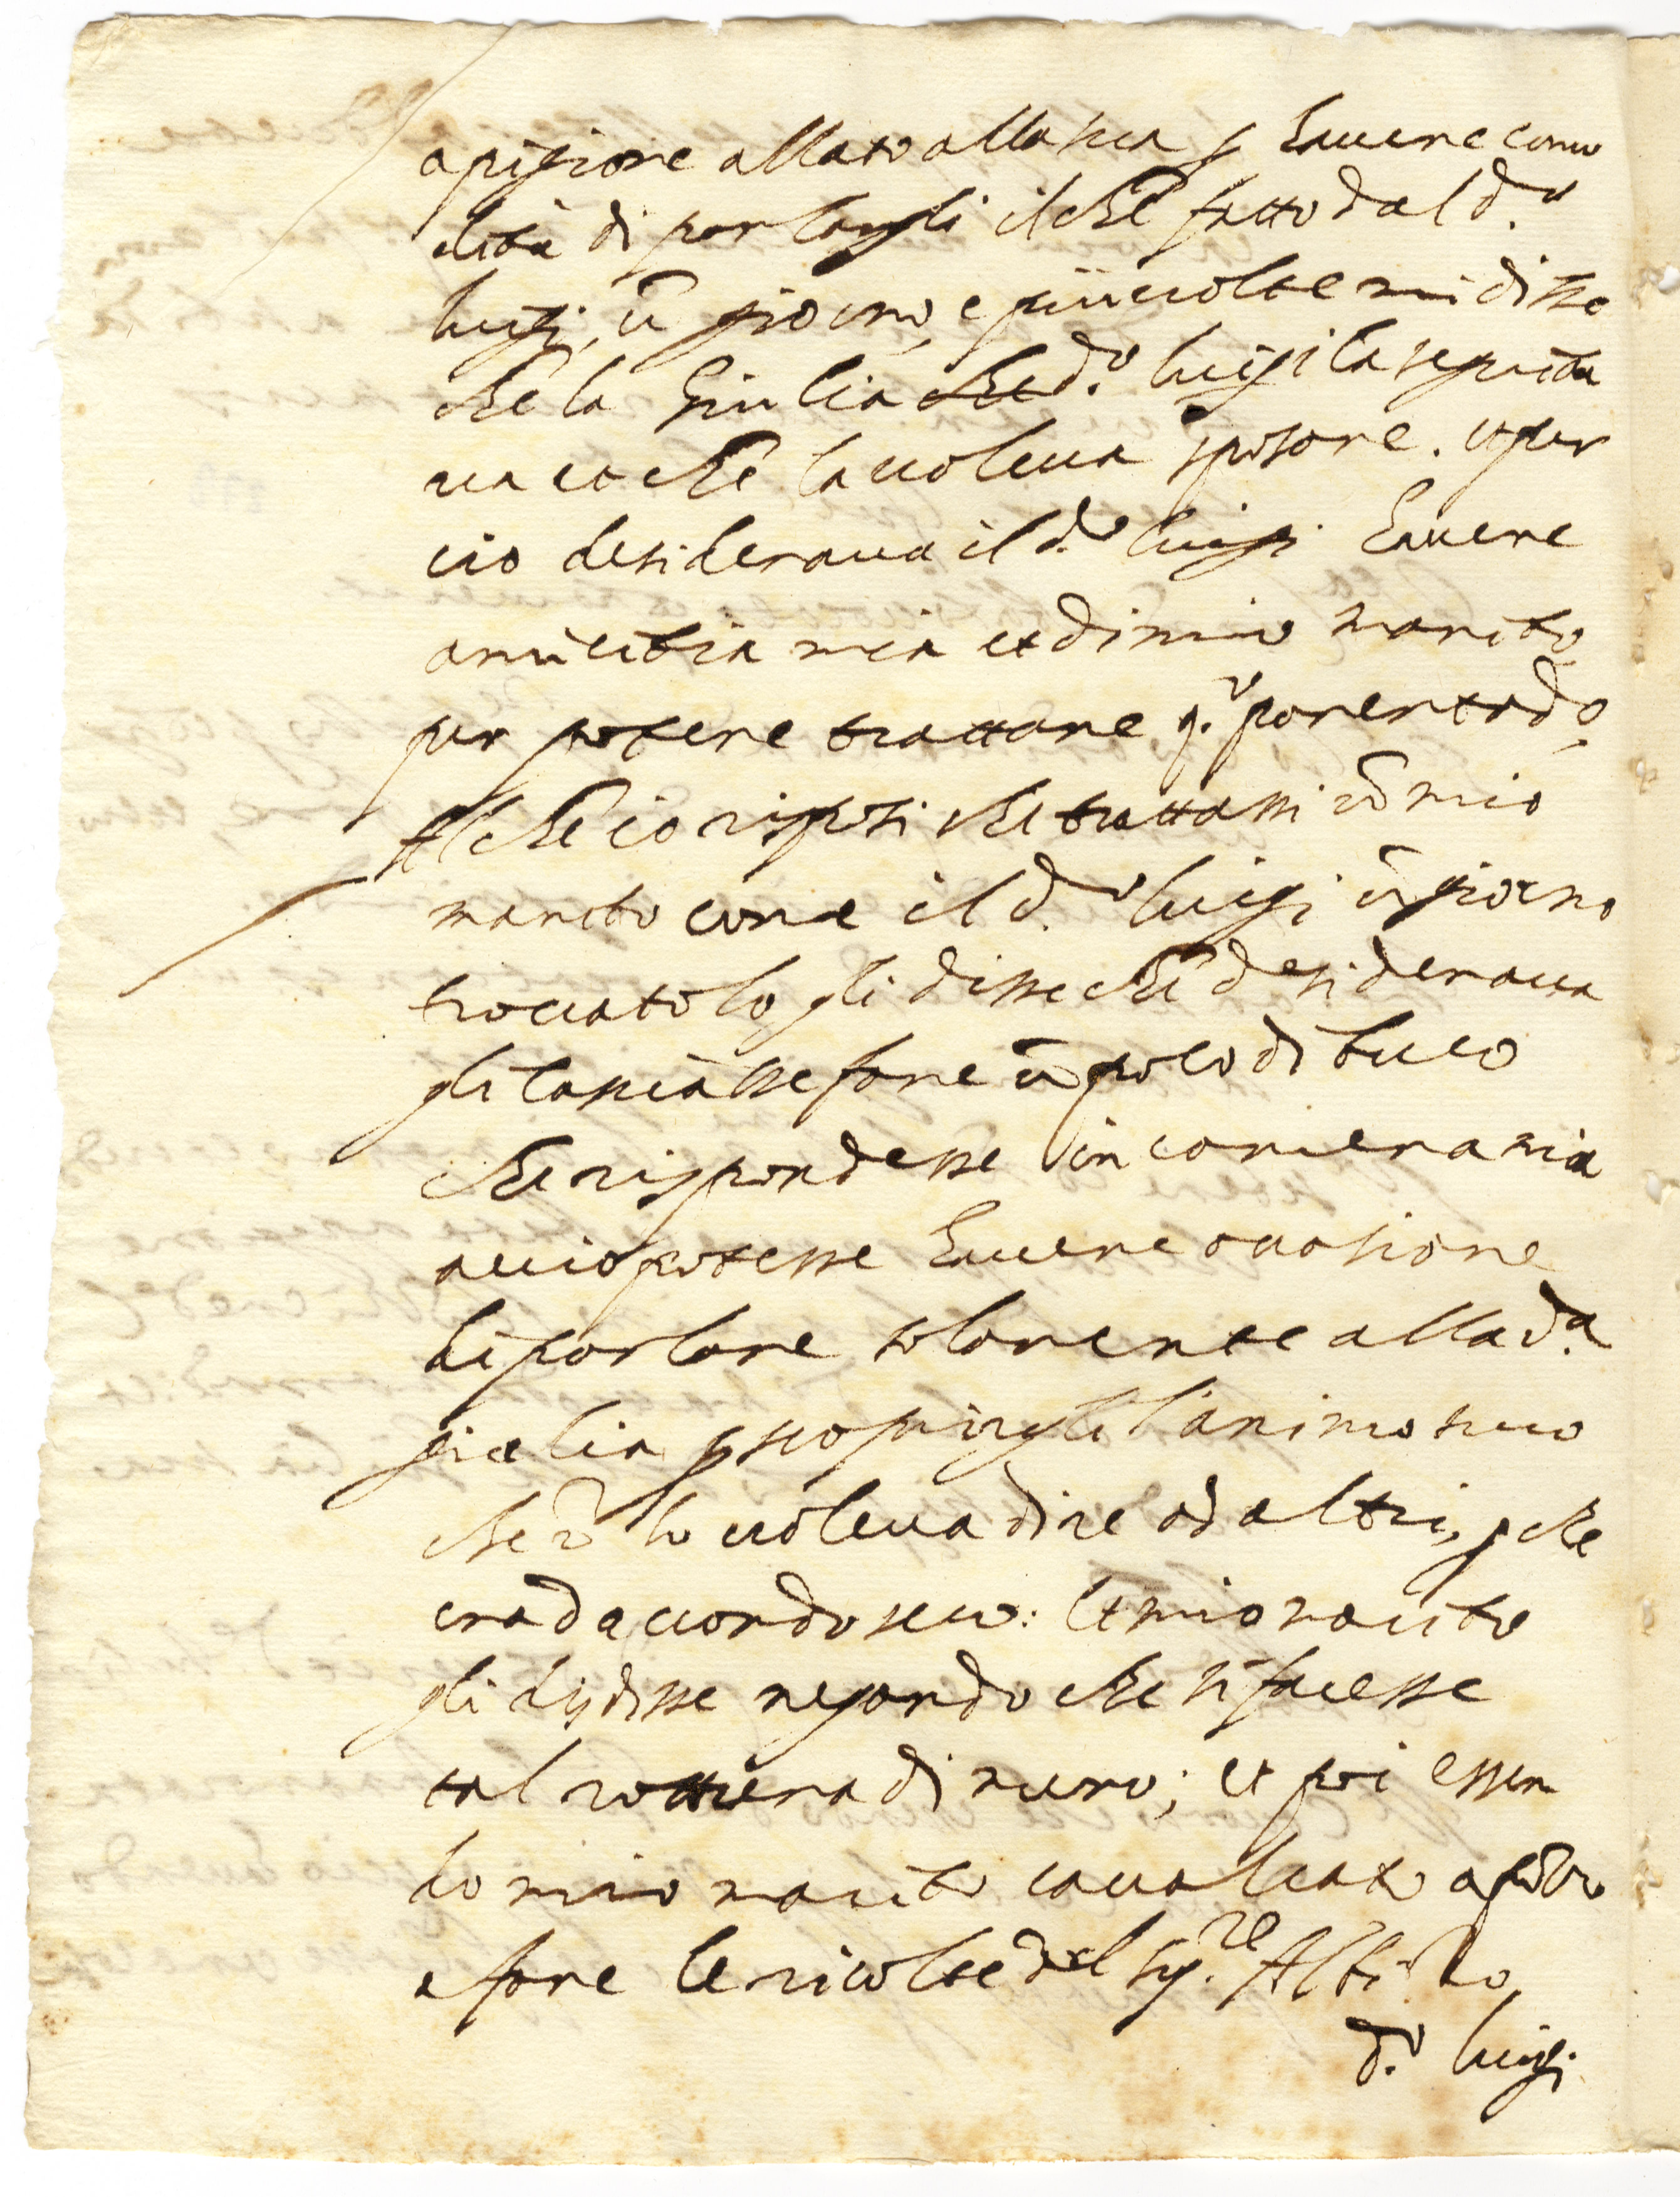 a pigione allato alla sua p hauere como
dità di parlargli il che fatto dal d.º
luigi, ũ giorno, e più uolte mi disse
che la Giulia che d.º luigi la seguita
ua et che la uoleua sposare. et per
ciò desideraua il d.º luigi hauere
amicitia mia et di mio marito
per potere trattare q.º parentado,
Al che io risposi che trattassi cõ mio
marito come il d.º luigi ũ giorno
trouatolo gli disse che desideraua
gli lasciasse fare ũ poco di buco
che rispondesse in camera mia
acciò potesse hauere occasione
di parlare solamente alla d.ª
giulia p scoprirgli l'animo suo
che nõ lo uoleua dire ad altri, p che
era d'accordo seco: et mio marito
gli disdisse negando che si facesse
tal rottura di muro; et poi essen
do mio marito caualcato a
a fare le ricolte del sig.re Alti
d.º luigi